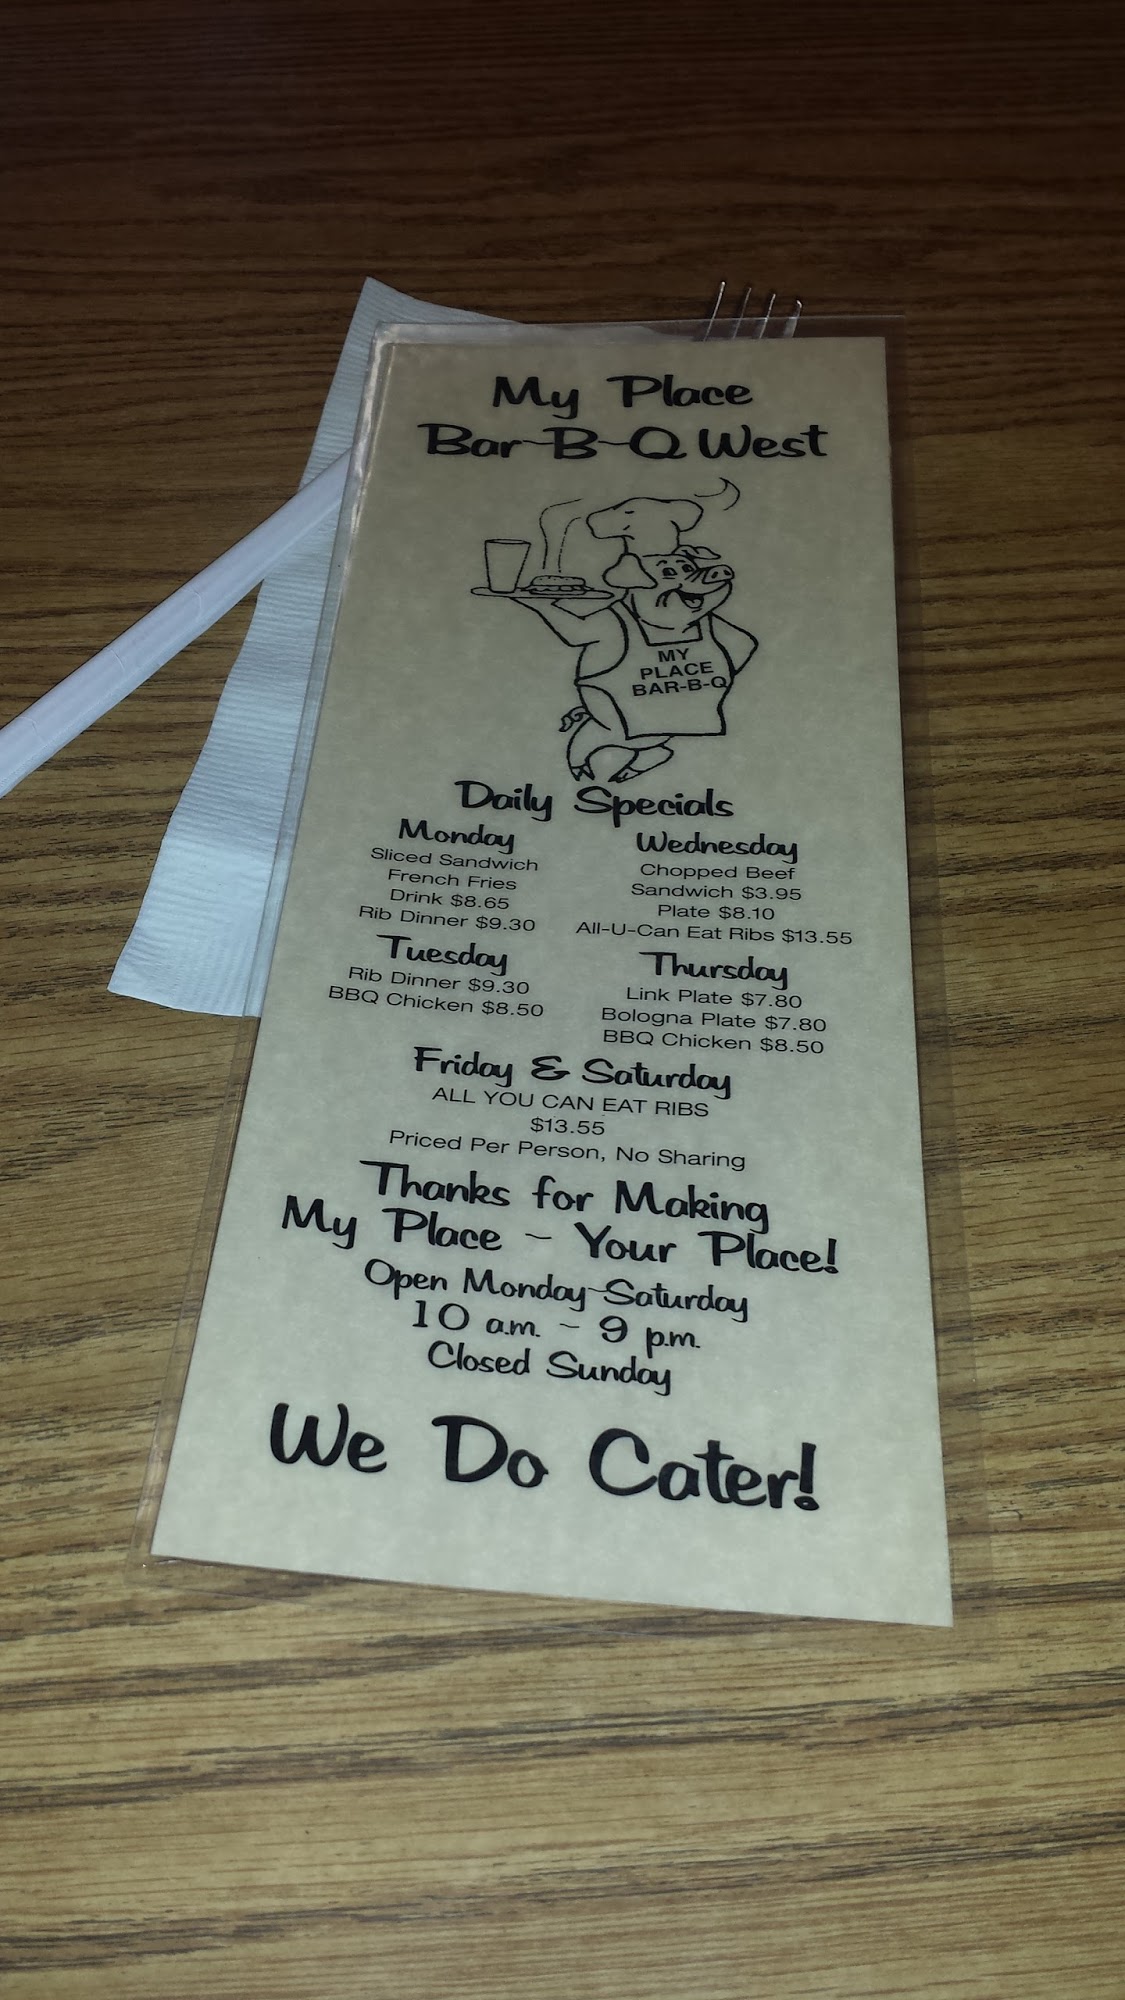 My Place
Bar-B-Q West
MY
PLACE
BAR-B-Q
Daily Specials
Monday
Sliced Sandwich
French Fries
Drink $8.65
Rib Dinner $9.30
Tuesday
Rib Dinner $9.30
BBQ Chicken $8.50
Wednesday
Chopped Beef
Sandwich $3.95
Plate $8.10
All-U-Can Eat Ribs $13.55
Thursday
Link Plate $7.80
Bologna Plate $7.80
BBQ Chicken $8.50
Friday & Saturday
ALL YOU CAN EAT RIBS
$13.55
Priced Per Person, No Sharing
Thanks for Making
My Place ~ Your Place!
Open Monday-Saturday
10 a.m. ~ 9 p.m.
Closed Sunday
We Do Cater!